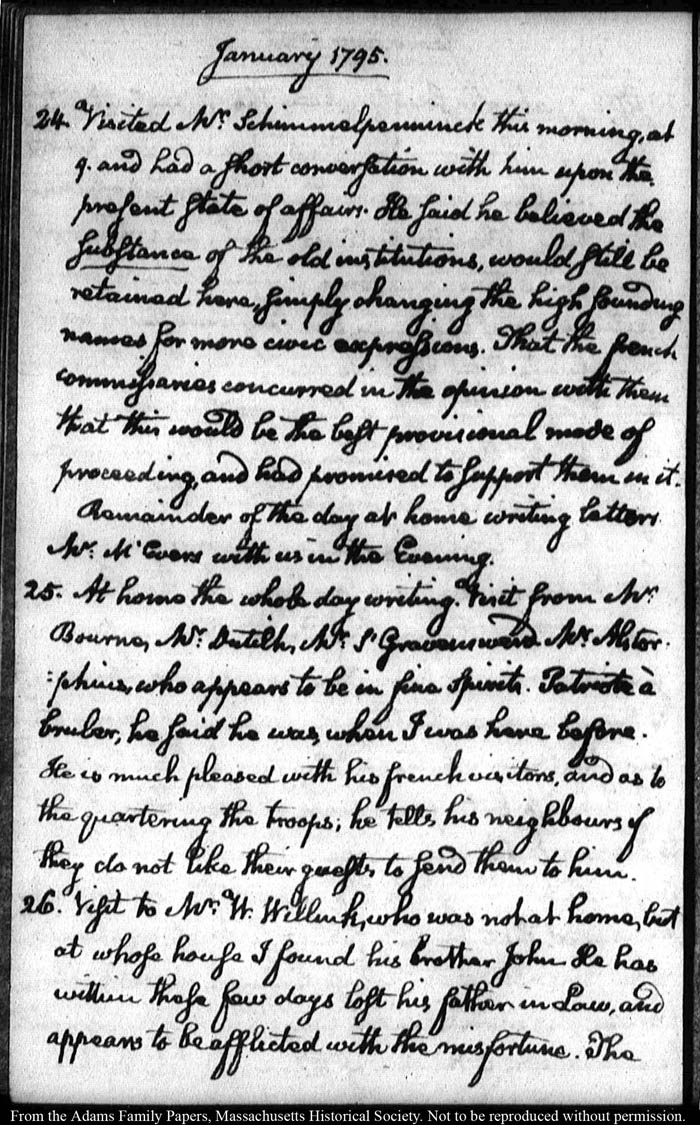 January 1795.
24. a Visited Mr. Schimmelpenninck this morning, at
9. and had a short conversation with him upon the
present state of affairs. He said he believed the
substance of the old institutions, would still be
retained here, simply changing the high sounding
names for more civic expressions. That the french
commissaries concurred in the opinion with them
that this would be the best provisional mode of
proceeding, and had promised to support them in it.
Remainder of the day at home writing letters
Mr. McEvers with us in the Evening.
25. At home the whole day writing. a Visit from Mr.
Bourne, Mr. Dutilh, Mr. S'Gravensweerd Mr. Alstor-
:phius, who appears to be in fine spirits. Patriote à
bruler, he said he was, when I was here before.
He is much pleased with his french visitors, and as to
the quartering the troops; he tells his neighbours if
they do not like their guests to send them to him.
26. a Visit to Mr. W. Willink, who was not at home, but
at whose house I found his brother John. He has
within these few days lost his father in Law, and
appears to be afflicted with the misfortune. The
From the Adams Family Papers, Massachusetts Historical Society. Not to be reproduced without permission.